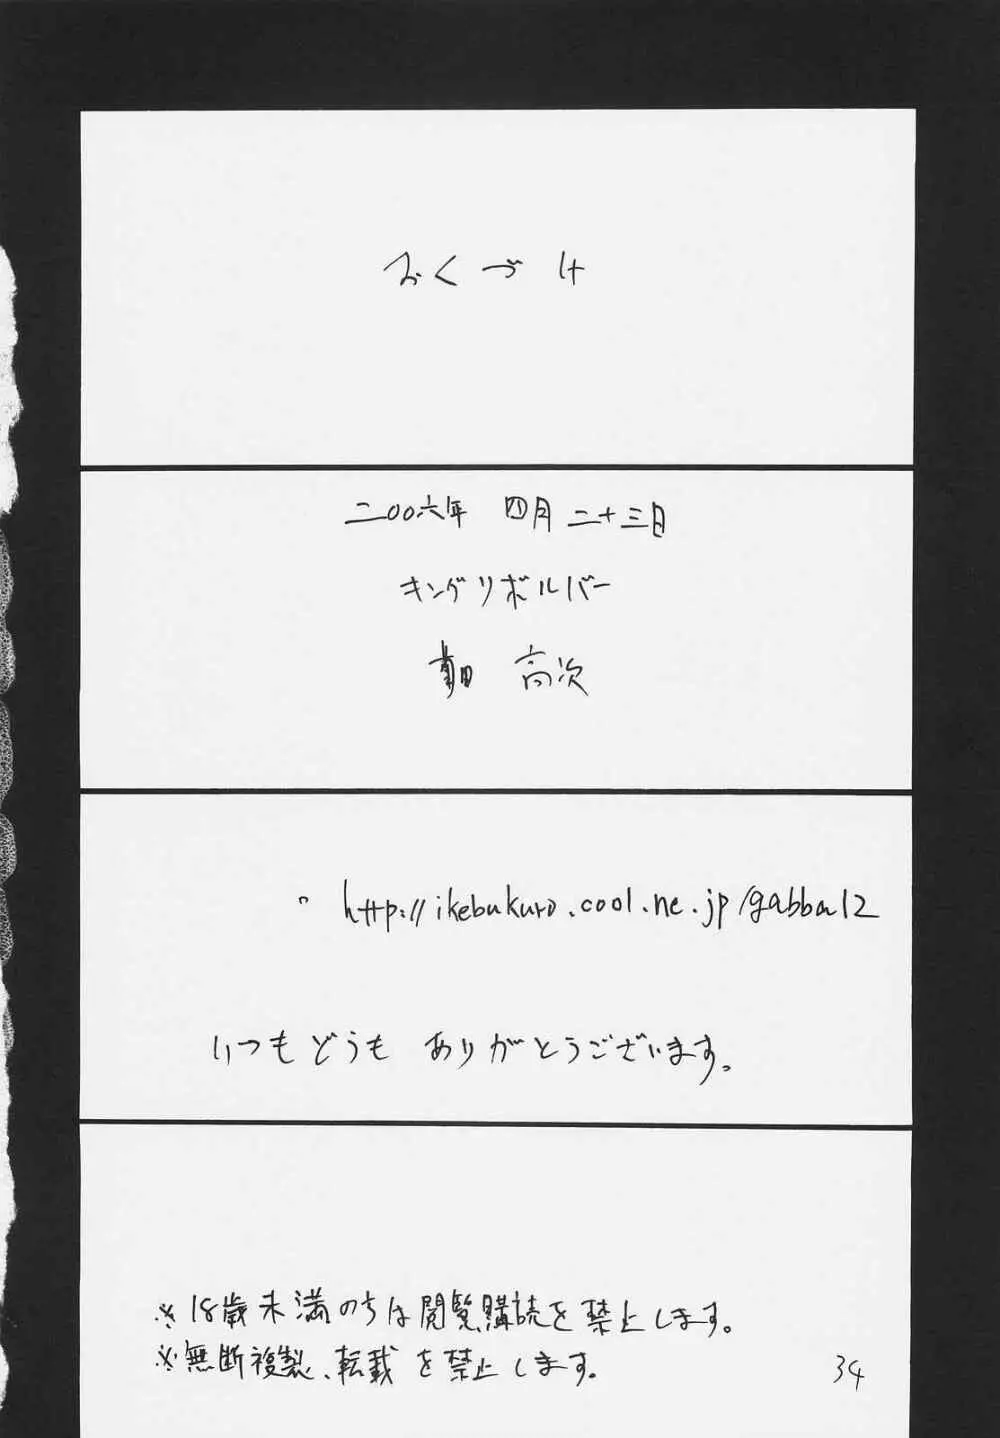 おくづけ
二〇〇六年 四月二十三日
キングリボルバー
高次
http://ikebukuro.cool.ne.jp/gabba12
いつもどうも ありがとうございます。
※18歳未満の方は閲覧購読を禁止します。
※無断複製、転載を禁止します。
34